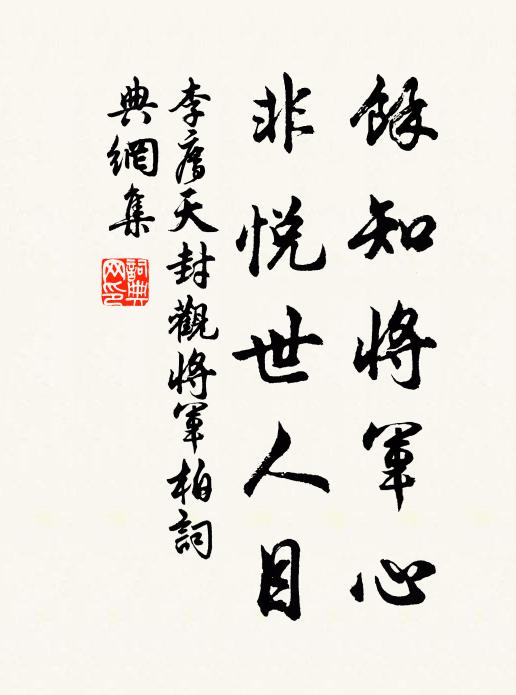 餘知將軍心
非悅世人目
李廌天封觀將軍柏詞
典網集
詞典
网印